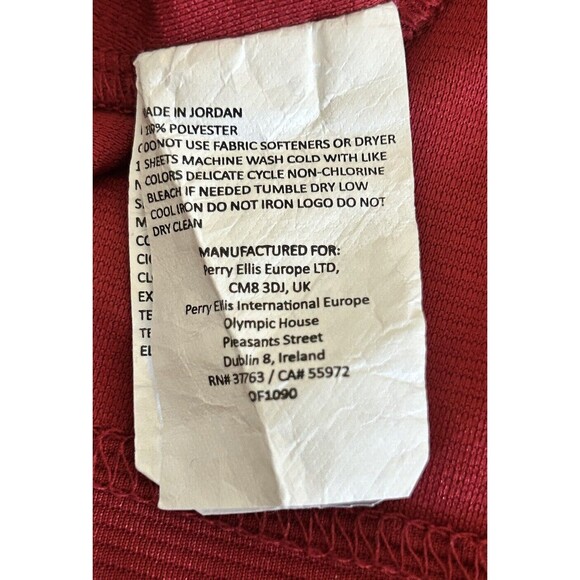 MADE IN JORDAN
100% POLYESTER
DO NOT USE FABRIC SOFTENERS OR DRYER
SHEETS MACHINE WASH COLD WITH LIKE
COLORS DELICATE CYCLE NON-CHLORINE
BLEACH IF NEEDED TUMBLE DRY LOW
COOL IRON DO NOT IRON LOGO DO NOT
DRY CLEAN
MANUFACTURED FOR:
Perry Ellis Europe LTD,
CM8 3DJ, UK
Perry Ellis International Europe
Olympic House
Pleasants Street
Dublin 8, Ireland
RN# 37763 / CA# 55972
OF1090